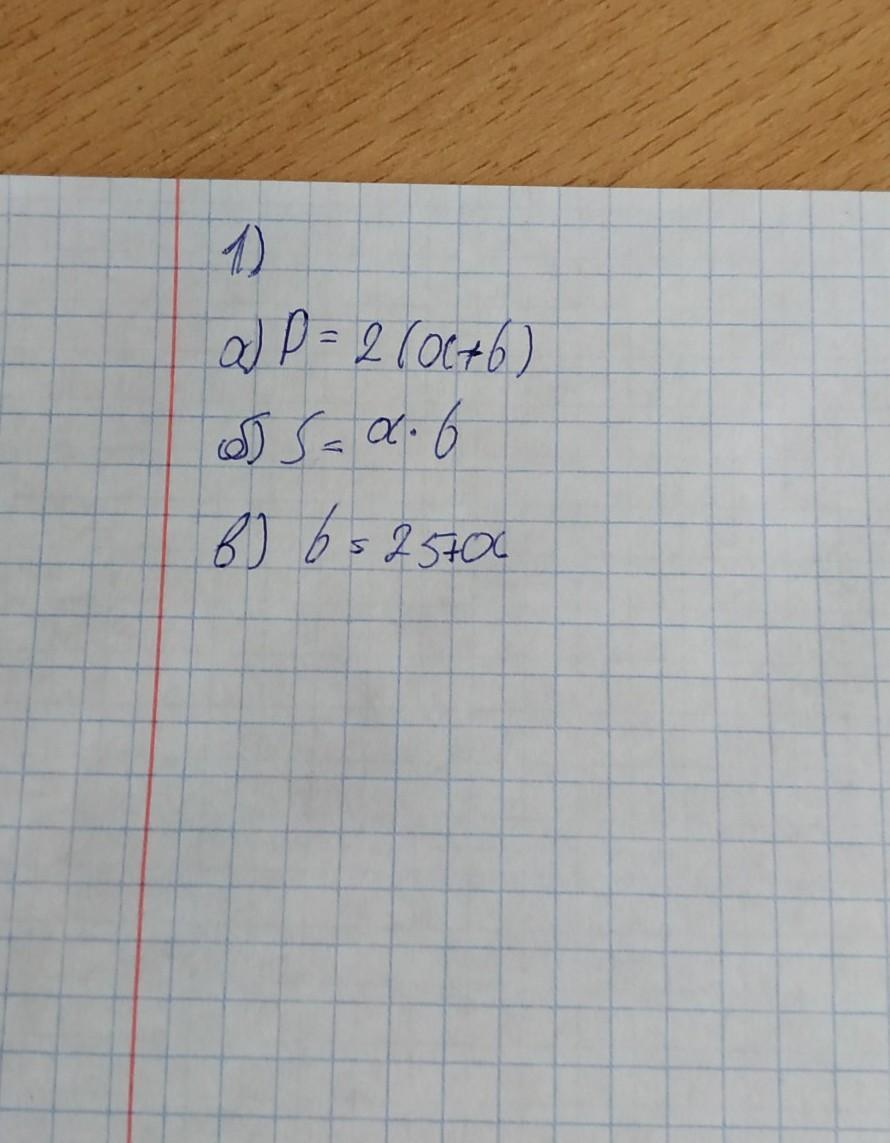 1)
а) P = 2 (a+b)
б) S = a · b
в) b = 257a